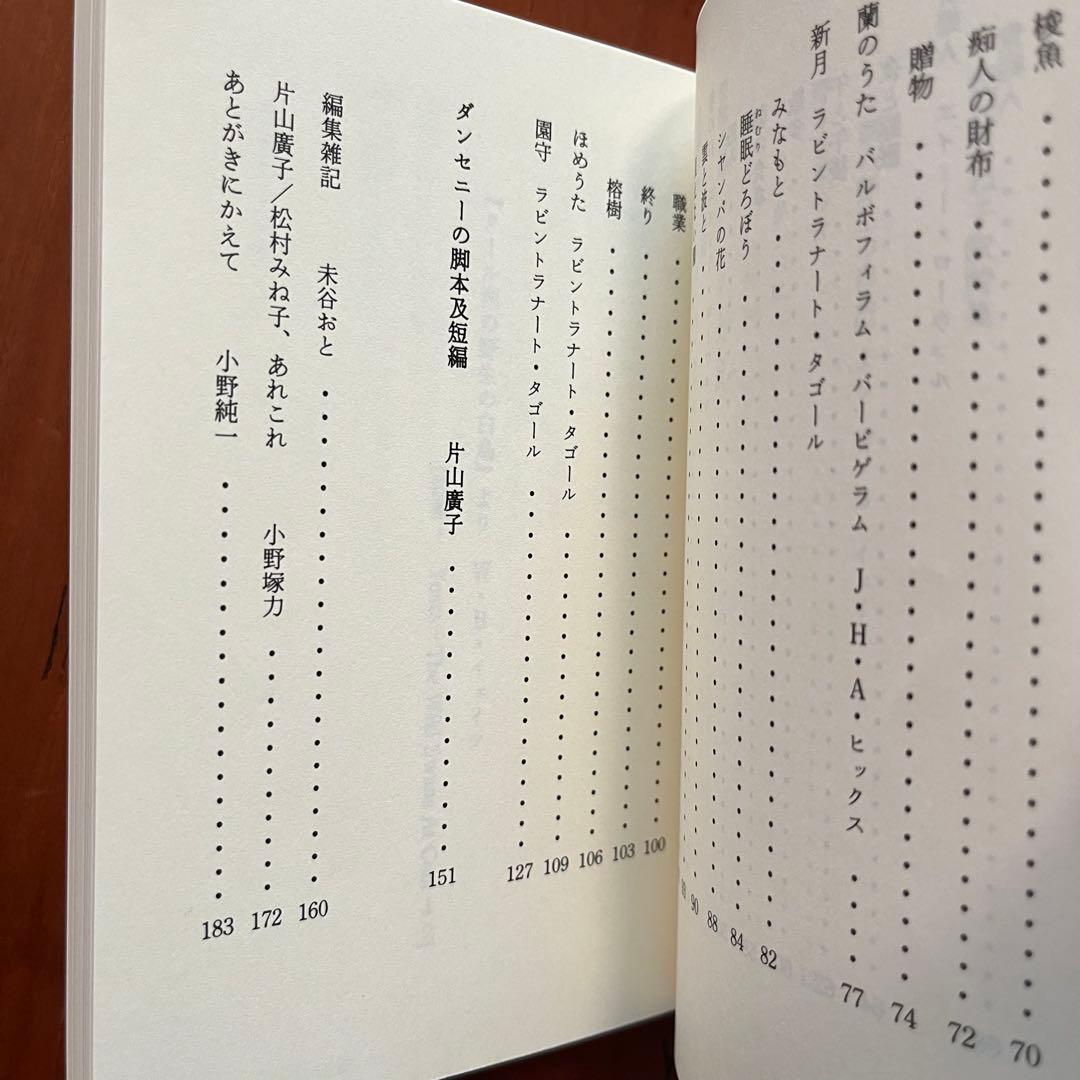 梭魚 70
痴人の財布 72
贈物 74
蘭のうた バルボフィラム・バービゲラム J・H・A・ヒックス 77
新月 ラビントラナート・タゴール
みなもと 82
睡眠どろぼう 84
ねむり
シヤンパの花 88
雲と波と 90
職業 100
終り 103
榕樹 106
ほめうた ラビントラナート・タゴール 109
園守 ラビントラナート・タゴール 127
ダンセニーの脚本及短編 片山廣子 151
編集雑記 未谷おと 160
片山廣子/松村みね子、あれこれ 小野塚力 172
あとがきにかえて 小野純一 183